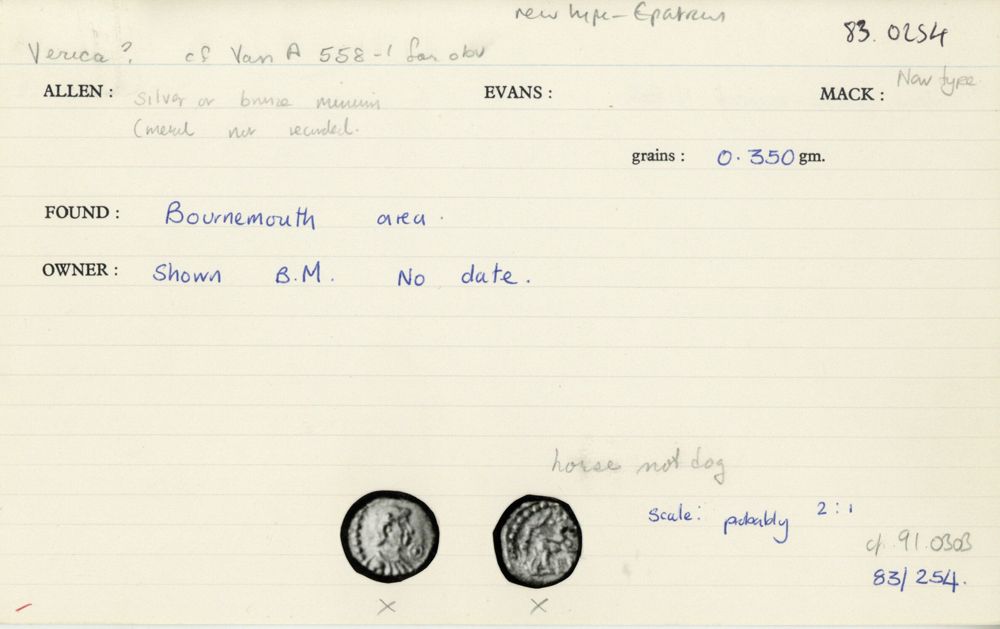 new type - Epaticcus
83.0254
Verica? cf Van A 558-1 for obv
ALLEN: Silver or bronze minim EVANS: MACK: New type
(metal not recorded.
grains: 0.350 gm.
FOUND: Bournemouth area.
OWNER: Shown B.M. No date.
horse not dog
Scale: probably 2:1
cf. 91.0303
83/254.
x x